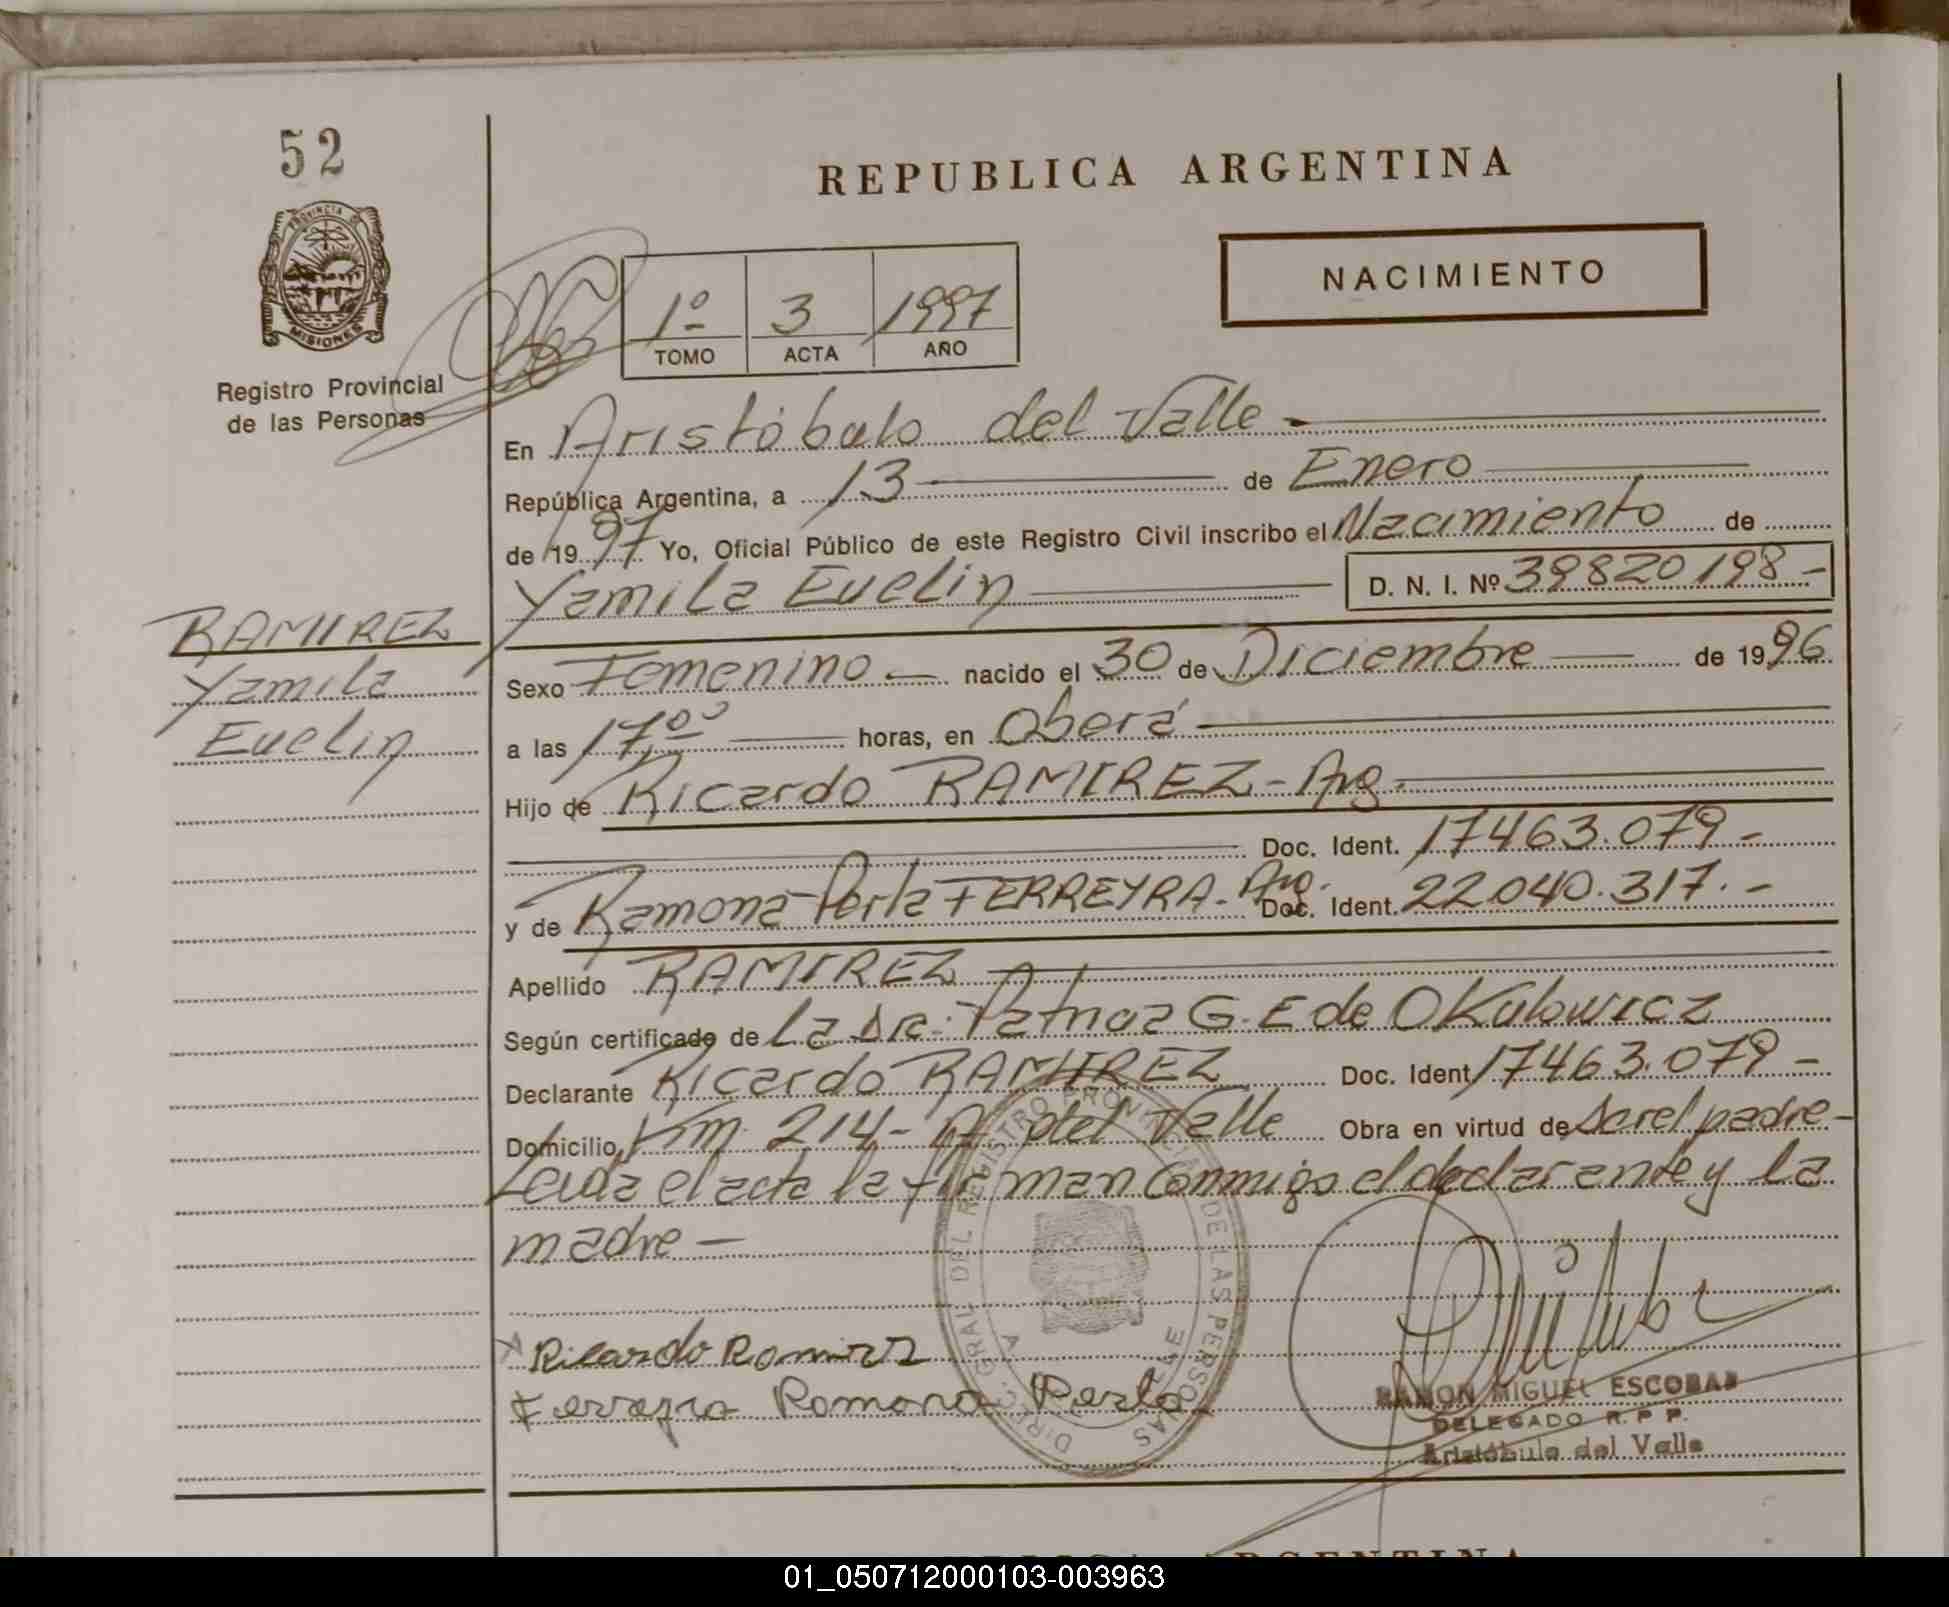 52
PROVINCIA DE
MISIONES
Registro Provincial
de las Personas
REPUBLICA ARGENTINA
NACIMIENTO
1º 3 1997
TOMO ACTA AÑO
En Aristóbulo del Valle -
República Argentina, a 13 de Enero
de 1997 Yo, Oficial Público de este Registro Civil inscribo el Nacimiento de
Yamila Evelin D. N. I. Nº 39820198-
RAMIREZ
Yamila
Evelin
Sexo Femenino nacido el 30 de Diciembre de 1996
a las 17,00 horas, en Oberá
Hijo de Ricardo RAMIREZ - Arg.
Doc. Ident. 17463.079-
y de Ramona Perla FERREYRA - Arg. Doc. Ident. 22.040.317.-
Apellido RAMIREZ
Según certificado de La Dra. Patricia G. E de OKulowicz
Declarante Ricardo RAMIREZ Doc. Ident 17463.079-
Domicilio Km. 214 - A. del Valle Obra en virtud de Ser el padre-
Leida el acta la firman conmigo el declarante y la
madre -
DIREC. GRAL DEL REGISTRO PROVINCIAL DE LAS PERSONAS
Ricardo Romirez
Ferreyra Romona Perla
RAMON MIGUEL ESCOBAR
DELEGADO R. P. P.
Aristóbulo del Valle
REPUBLICA ARGENTINA
01_050712000103-003963